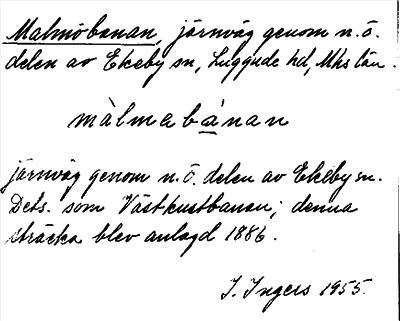 Malmöbanan, järnväg genom n.ö.
delen av Ekeby sn, Luggude hd, Mhs län.
màlmebánan
järnväg genom n.ö. delen av Ekeby sn.
Dets. som Västkustbanan; denna
sträcka blev anlagd 1886.
I. Ingers 1955.